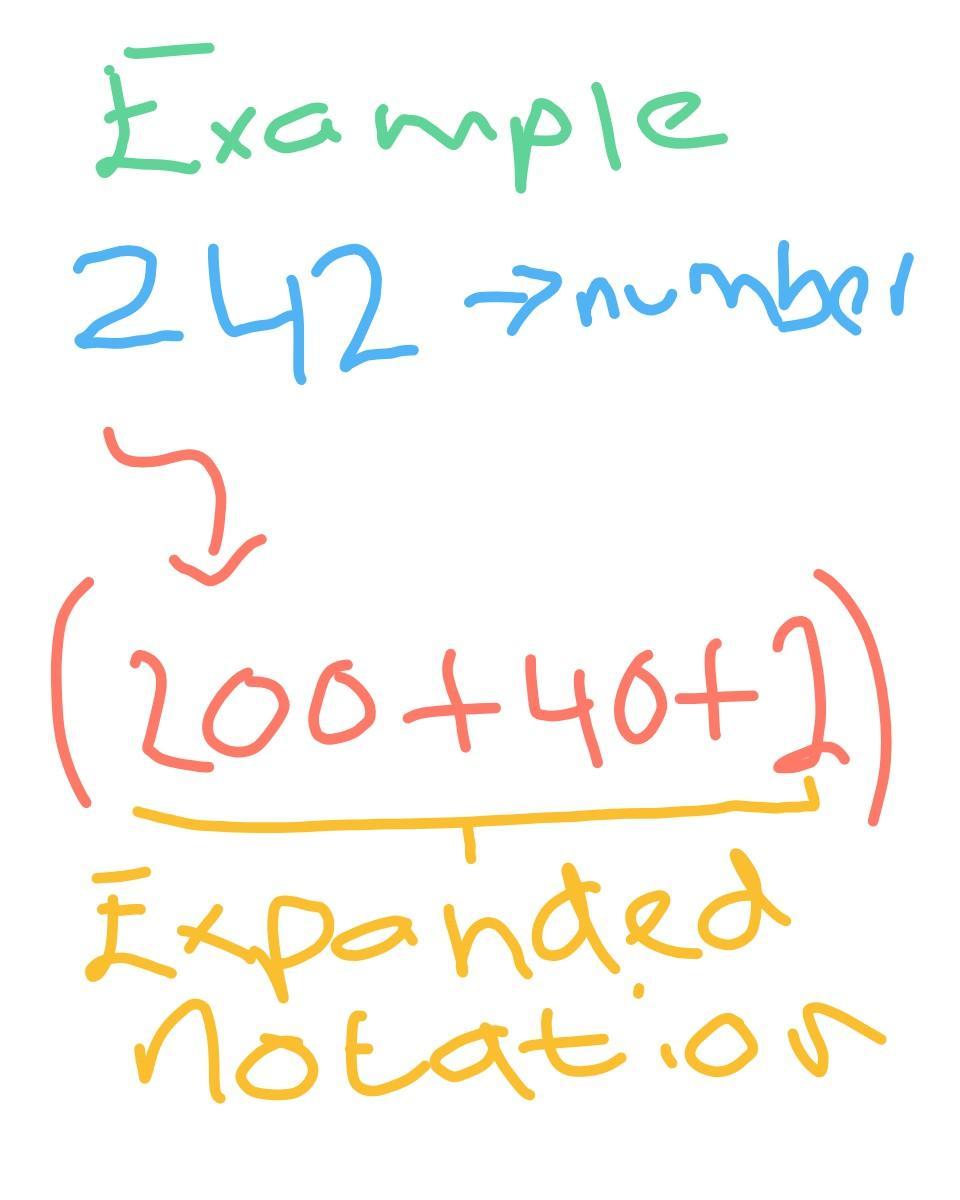 Example
242 → number
(200+40+2)
Expanded
notation